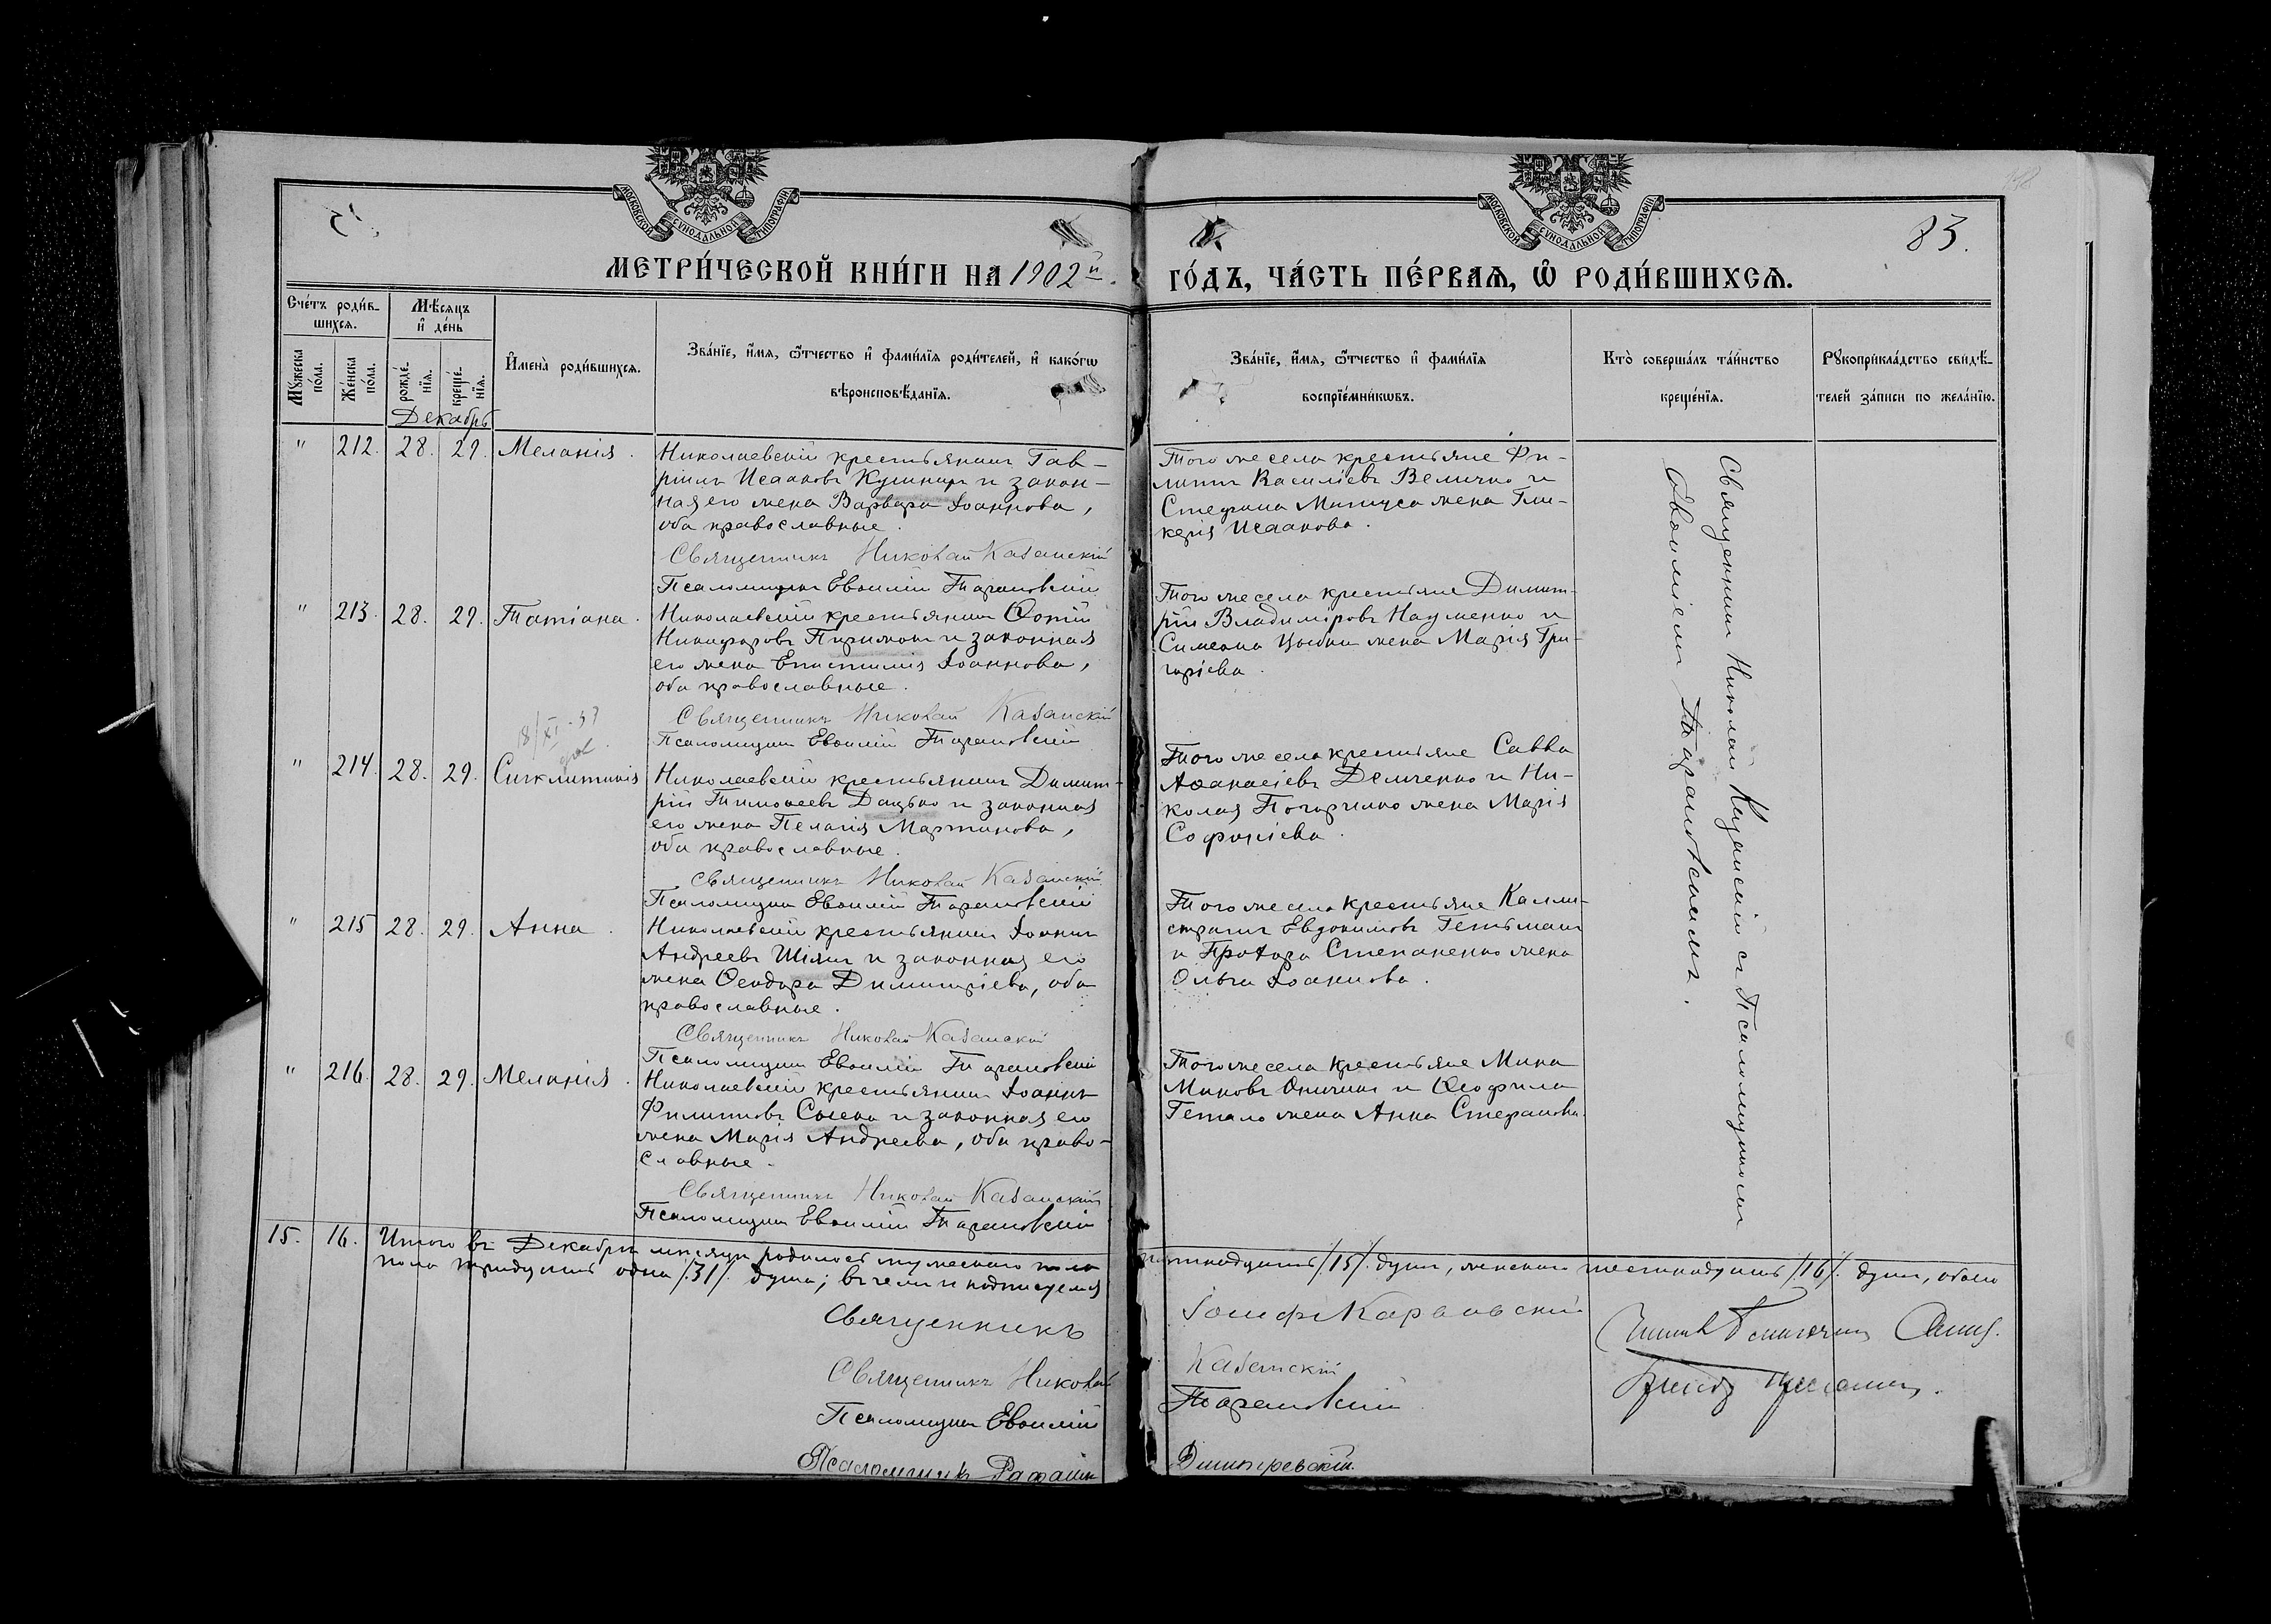 МОСКОВСКОЙ СѴНОДАЛЬНОЙ ТИПОГРАФІИ
МОСКОВСКОЙ СѴНОДАЛЬНОЙ ТИПОГРАФІИ
83.
МЕТРИ́ЧЕСКОЙ КНИ́ГИ НА 1902й.
ГО́ДЪ, ЧА́СТЬ ПЕ́РВАѦ, Ѽ РОДИ́ВШИХСѦ.
Сче́тъ роди́в-
шихсѧ.
Мѣ́сѧцъ
и҆ де́нь
Мꙋжеска
по́ла.
Же́нска
по́ла.
рожде́-
нїѧ.
креще́-
нїѧ.
И҆мена̀ роди́вшихсѧ.
Зва́нїе, и҆́мѧ, ѻ҆́тчество и҆ фами́лїѧ роди́телей, и҆ како́гѡ
вѣроисповѣ́данїѧ.
Зва́нїе, и҆́мѧ, ѻ҆́тчество и҆ фами́лїѧ
воспрїе́мникѡвъ.
Кто̀ соверша́лъ та́инство
креще́нїѧ.
Рꙋкоприкла́дство свидѣ́-
телей за́писи по жела́нїю.
Декабрь
" 212. 28. 29. Меланія.
Николаевскій крестьянинъ Гав-
ріилъ Исааковъ Кушниръ и закон-
ная его жена Варвара Іоаннова,
оба православные.
Священникъ Николай Казанскій
Псаломщикъ Евѳимій Тарановскій
Того же села крестьяне Фи-
липпъ Василіевъ Величко и
Стефана жена Гли-
керія Исаакова.
" 213. 28. 29. Татіана.
Николаевскій крестьянинъ Ѳотій
Никифоровъ и законная
его жена Епистимія Іоаннова,
оба православные.
Священникъ Николай Казанскій
Псаломщикъ Евѳимій Тарановскій
Того же села крестьяне Димит-
рій Владиміровъ Науменко и
Симеона Цыбки жена Марія Гри-
горіева
18/XI-37
" 214. 28. 29. Синклитикія
Николаевскій крестьянинъ Димит-
рій Тимоѳеевъ Дацько и законная
его жена Пелагія Мартинова,
оба православные.
Священникъ Николай Казанскій
Псаломщикъ Евѳимій Тарановскій
Того же села крестьяне Савва
Аѳанасіевъ Демченко и Ни-
колая Погорилко жена Марія
Софоніева.
" 215 28. 29. Анна.
Николаевскій крестьянинъ Іоаннъ
Андреевъ Шіянъ и законная его
жена Ѳеодора Димитріева, оба
православные.
Священникъ Николай Казанскій
Псаломщикъ Евѳимій Тарановскій
Того же села крестьяне Калли-
стратъ Евдокимовъ Гетьманъ
и Степаненко жена
Ольга Іоаннова.
" 216. 28. 29. Меланія.
Николаевскій крестьянинъ Іоаннъ
Филипповъ и законная его
жена Марія Андреева, оба право-
славные.
Священникъ Николай Казанскій
Псаломщикъ Евѳимій Тарановскій
Того же села крестьяне Мина
Миновъ и Ѳеофила
Гетало жена Анна Стефанова.
Священникъ Николай Казанскій съ Псаломщикомъ
Евѳиміемъ Тарановскимъ.
15. 16. Итого въ Декабрѣ мѣсяцѣ родилось мужескаго пола пятнадцать /15/. душъ, женскаго шестнадцать /16/. душъ, обоего
пола тридцать одна /31/. душа; въ чемъ и подписуемся
Священникъ Іосифъ
Священникъ Николай Казанскій
Псаломщикъ Евѳимій Тарановскій
Псаломщикъ